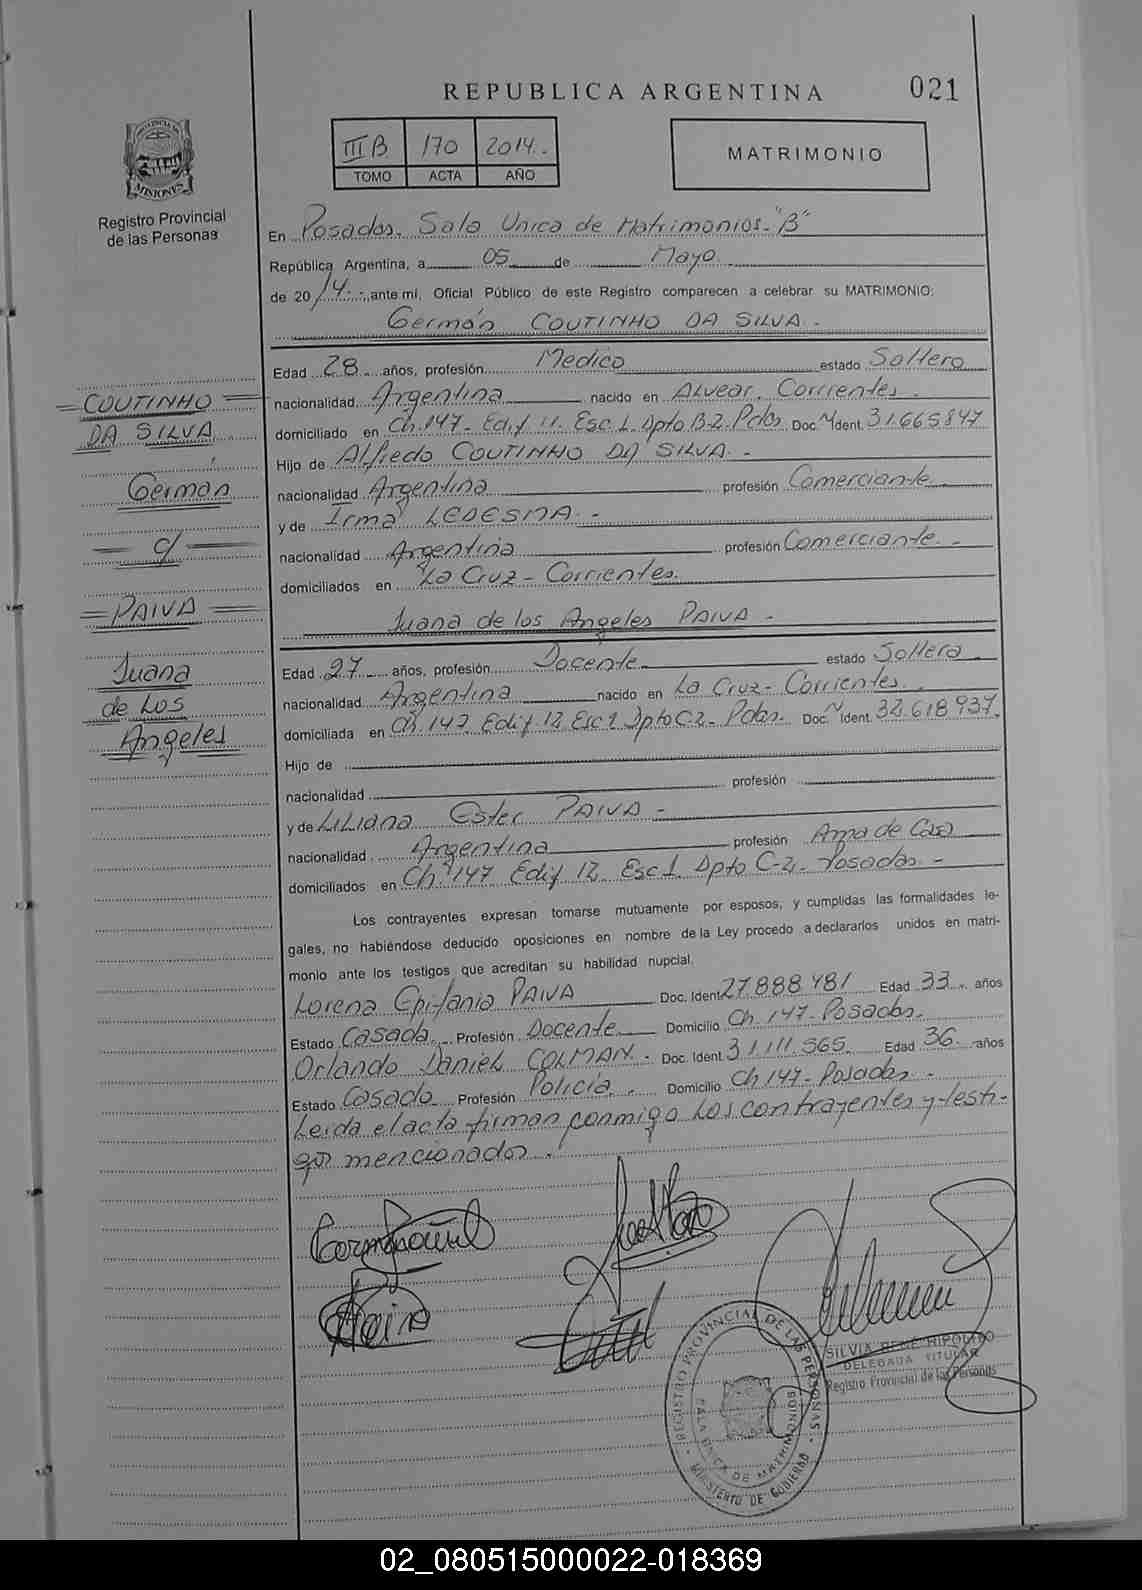 REPUBLICA ARGENTINA 021
PROVINCIA DE MISIONES
Registro Provincial
de las Personas
III B 170 2014.-
TOMO ACTA AÑO
MATRIMONIO
En Posadas. Sala Unica de Matrimonios-"B"
República Argentina, a 05 de Mayo.
de 2014.- ante mí, Oficial Público de este Registro comparecen a celebrar su MATRIMONIO:
Germán COUTINHO DA SILVA.-
Edad 28 años, profesión Medico estado Soltero
nacionalidad Argentina nacido en Alvear. Corrientes.
domiciliado en Ch.147- Edif 11. Esc 1. Dpto B-2. Pdas. Doc. N Ident. 31.665847
Hijo de Alfredo COUTINHO DA SILVA.-
nacionalidad Argentina profesión Comerciante
y de Irma LEDESMA.-
nacionalidad Argentina profesión Comerciante.-
domiciliados en La Cruz- Corrientes.
Juana de los Angeles PAIVA-
Edad 27 años, profesión Docente estado Soltera
nacionalidad Argentina nacido en La Cruz- Corrientes.
domiciliada en Ch. 147. Edif 12. Esc 1 Dpto C-2- Pdas. Doc. N Ident. 32.618937.
Hijo de
nacionalidad profesión
y de Liliana Ester PAIVA-
nacionalidad Argentina profesión Ama de Casa
domiciliados en Ch 147 Edif 12. Esc 1. Dpto C-2- Posadas.-
Los contrayentes expresan tomarse mutuamente por esposos, y cumplidas las formalidades le-
gales, no habiéndose deducido oposiciones en nombre de la Ley procedo a declararlos unidos en matri-
monio ante los testigos que acreditan su habilidad nupcial.
Lorena Epifania PAIVA Doc. Ident. 27888481 Edad 33. años
Estado Casada. Profesión Docente Domicilio Ch. 147- Posadas.
Orlando Daniel COLMAN. Doc. Ident. 31.111.565. Edad 36. años
Estado Casado Profesión Policía. Domicilio Ch 147- Posadas-
Leida el acta firman conmigo los contrayentes y testi-
gos mencionados.
COUTINHO
DA SILVA
Germán
c/
PAIVA
Juana
de Los
Angeles
SILVIA RENE HIPOLITO
DELEGADA TITULAR
Registro Provincial de las Personas
REGISTRO PROVINCIAL DE LAS PERSONAS
SALA UNICA DE MATRIMONIOS
MINISTERIO DE GOBIERNO
02_080515000022-018369